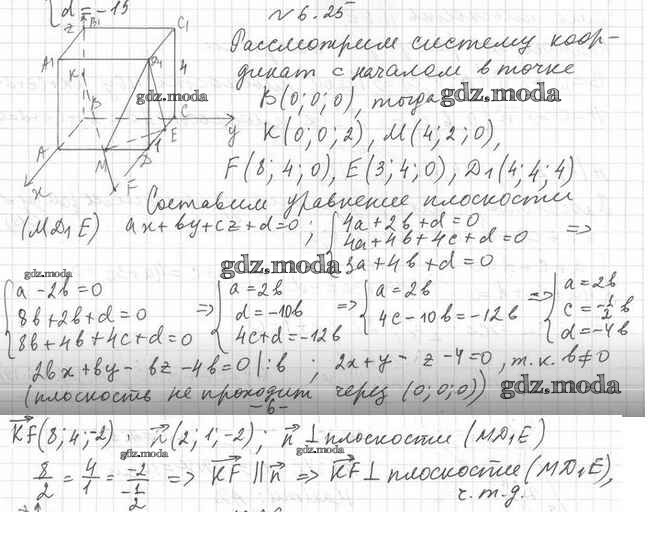 d = -15
N 6.25
Рассмотрим систему коор-
динат с началом в точке
B(0;0;0), тогда
K(0;0;2), M(4;2;0),
F(8;4;0), E(3;4;0), D₁(4;4;4)
Составим уравнение плоскости
(MD₁E) ax+by+cz+d=0; { 4a+2b+d=0
4a+4b+4c+d=0 =>
3a+4b+d=0
{ a-2b=0
8b+2b+d=0
8b+4b+4c+d=0
=> { a=2b
d=-10b
4c+d=-12b
=> { a=2b
4c-10b=-12b
=> { a=2b
c=-1/2 b
d=-4b
2bx+by- bz-4b=0 |:b ; 2x+y- z-4=0, т.к. b≠0
(плоскость не проходит через (0;0;0))
-6-
KF(8;4;-2) n(2;1;-2); n ⊥ плоскости (MD₁E)
8/2 = 4/1 = -2/(-1/2) => KF ∥ n => KF ⊥ плоскости (MD₁E),
ч.т.д.
z
B₁
C₁
A₁
D₁
K
4
B
C
y
E
A
M
D
1
F
x
gdz.moda
gdz.moda
gdz.moda
gdz.moda
gdz.moda
gdz.moda
gdz.moda